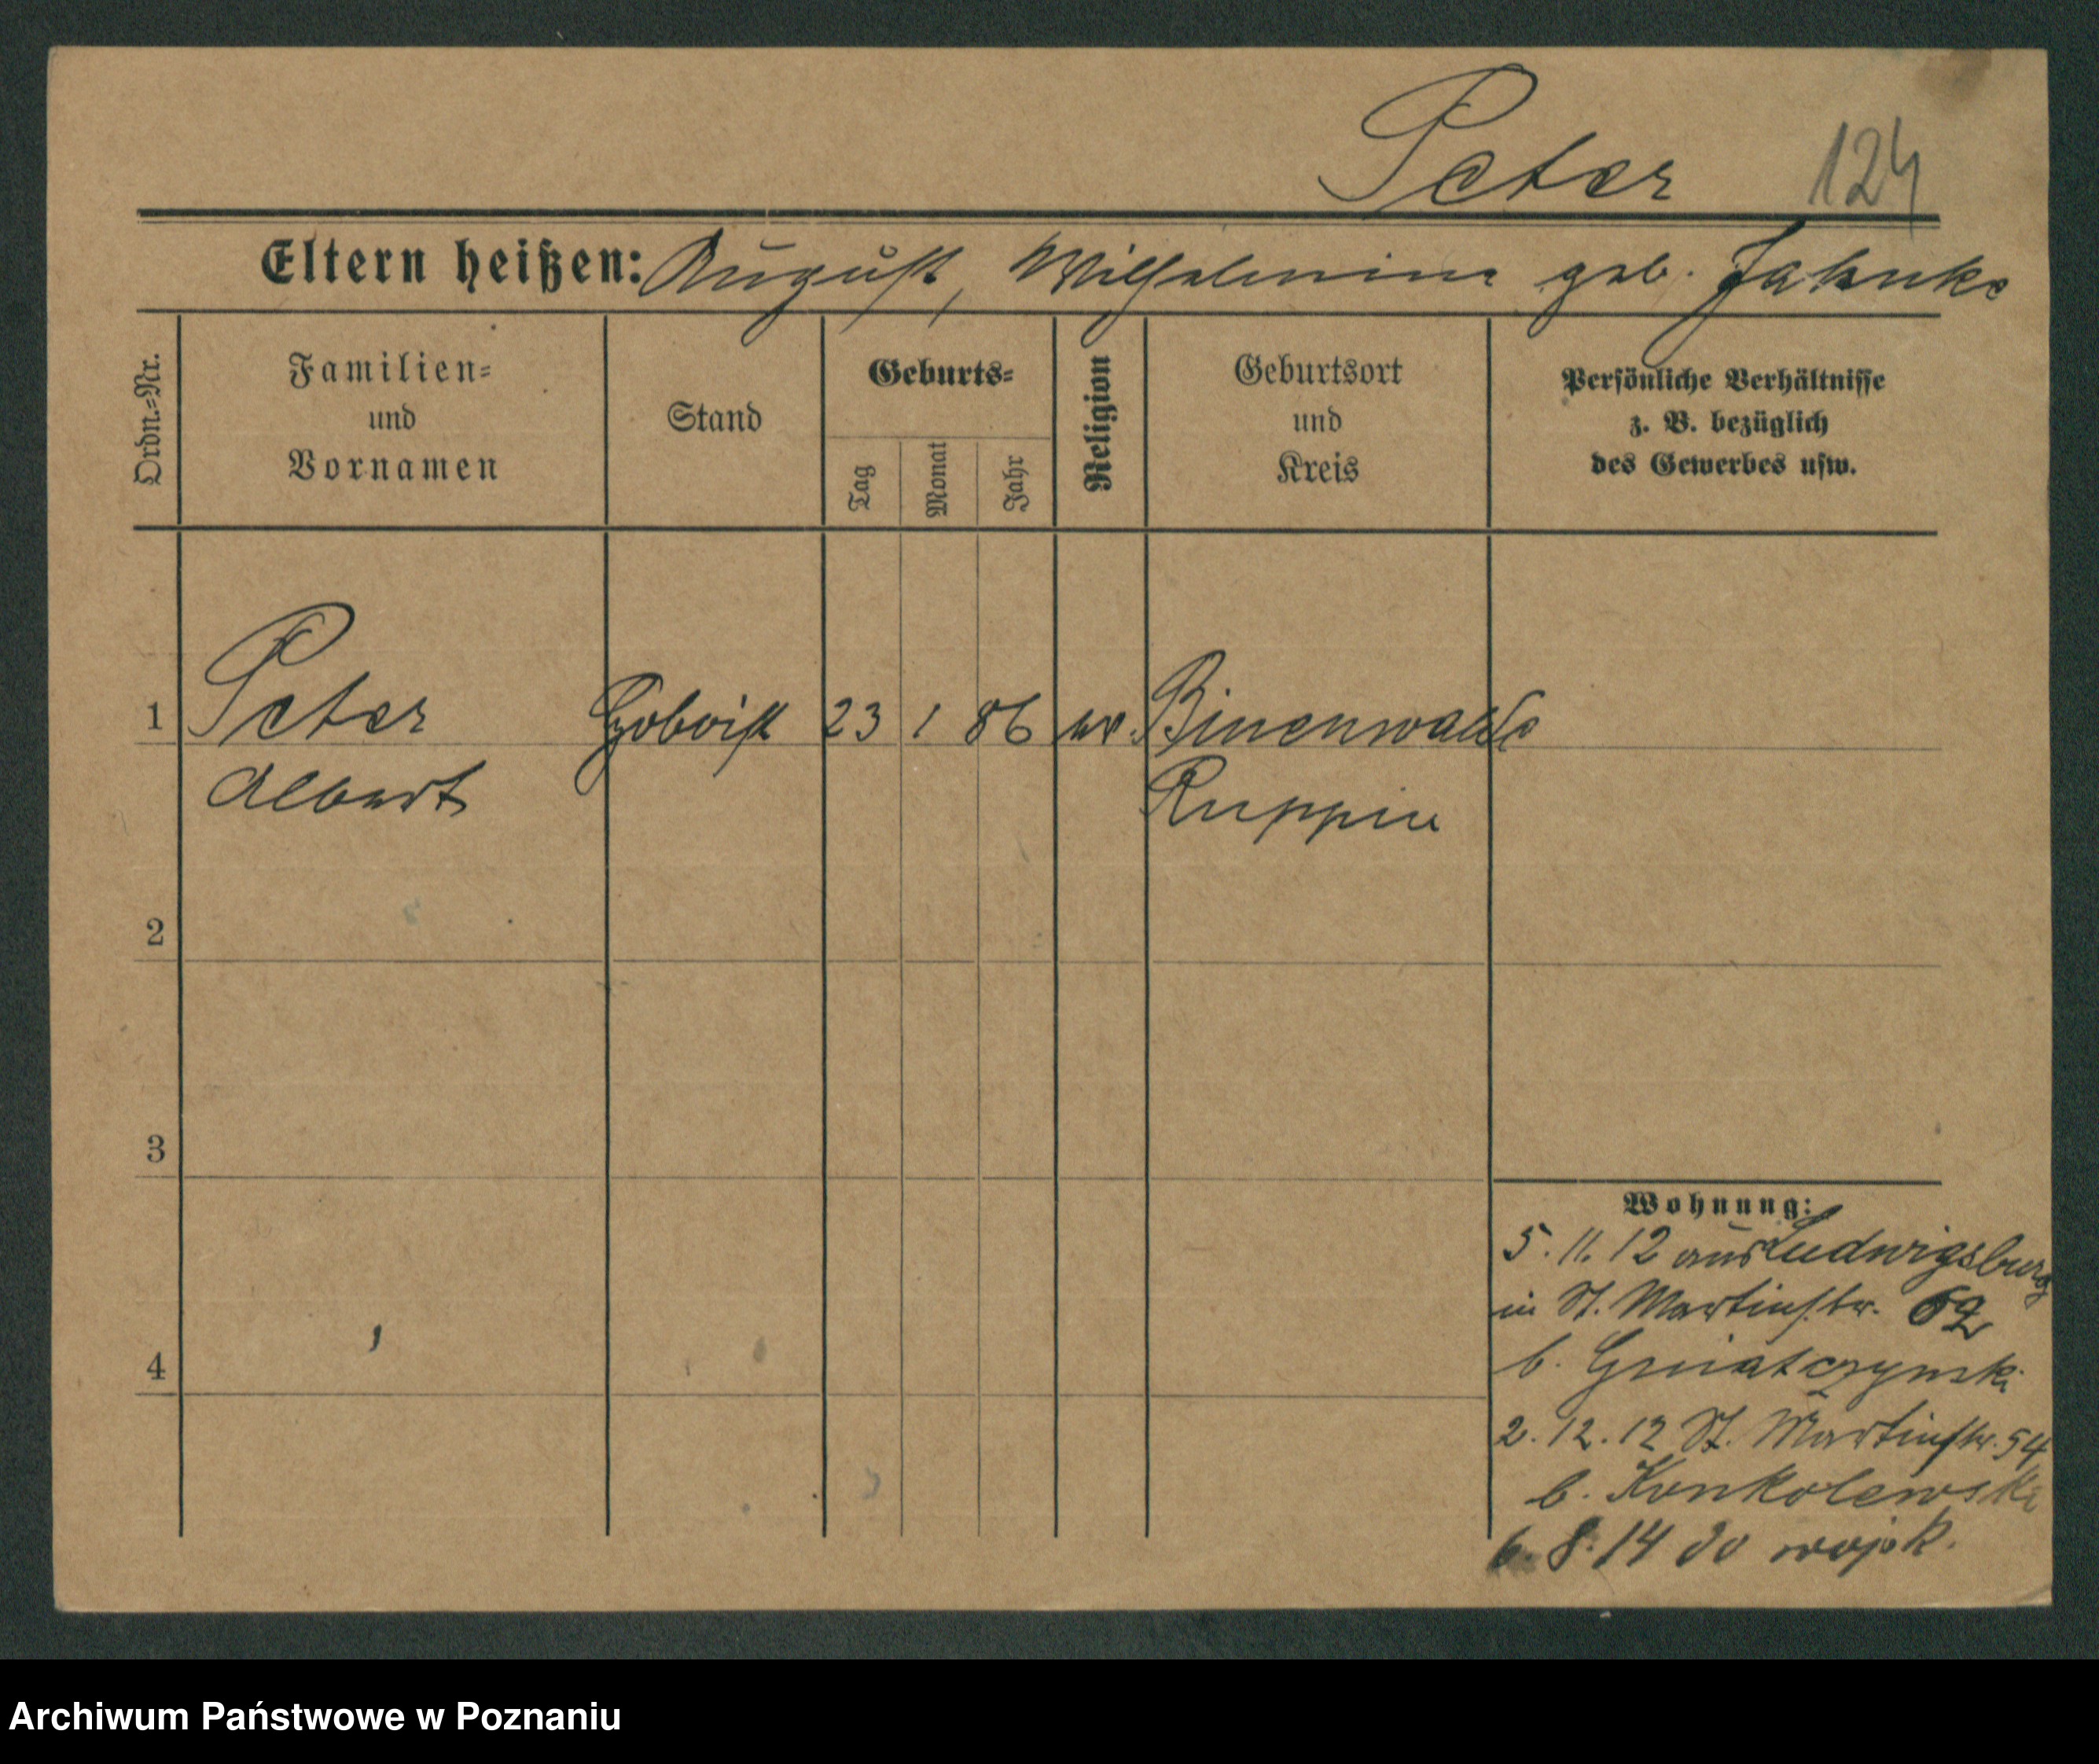 Peter 124
Eltern heißen: August, Wilhelmine geb. Jahnke
Ordn.=Nr.
Familien=
und
Vornamen
Stand
Geburts=
Tag
Monat
Jahr
Religion
Geburtsort
und
Kreis
Persönliche Verhältnisse
z. B. bezüglich
des Gewerbes usw.
1 Peter Hoboist 23 1 86 ev. Binenwalde
Albert Ruppin
2
3
4
Wohnung:
5. 11. 12 aus Ludwigsburg
in St. Martinstr. 62
b. Gniatczynski
2. 12. 12 St. Martinstr. 54
b. Konkolewski
6. 8. 14 do wojsk.
Archiwum Państwowe w Poznaniu